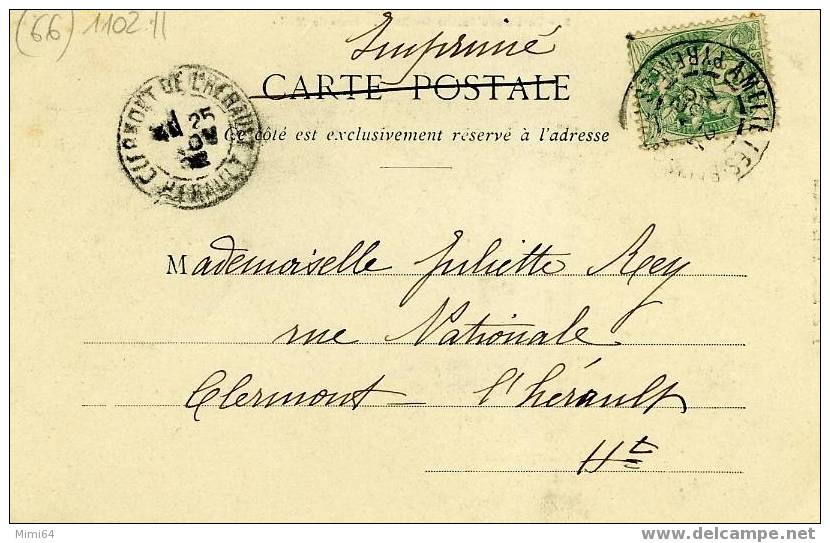 (66) 1102 11
Imprimé
CARTE POSTALE
Ce côté est exclusivement réservé à l'adresse
CLERMONT DE L'HERAULT HERAULT
25
AMELIE-LES-BAINS
PYRÉN
Mademoiselle Juliette Rey
rue Nationale
Clermont-l'hérault
Ht
Mimi64
delcampe.net